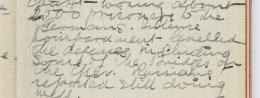 losing about
1000 prisoners to the
Germans. Intense
bombardment levelled
the defences including
some of the bridges of
the Yser. Russians
reported still doing
well.